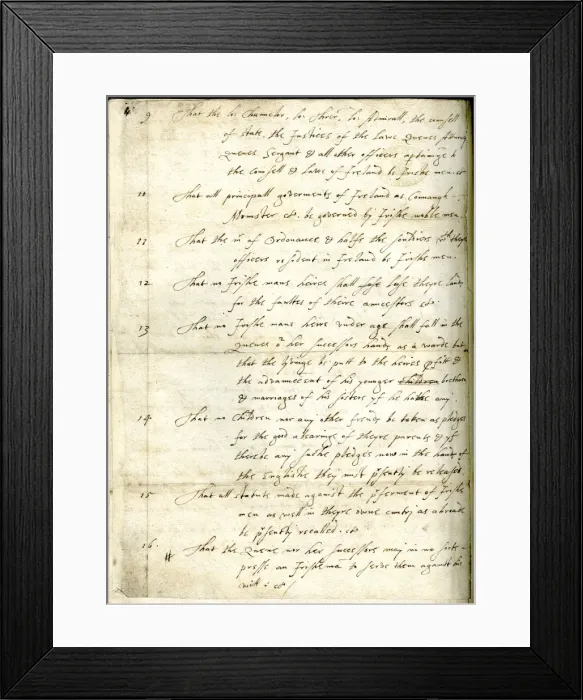 9 That the lo: Chauncelor, lo: Threr, lo: Admirall, the counsell
of state, the Justices of the lawe Quenes Attorny
Quenes Sergant & all other officers aptaininge to
the counsell & lawe of Ireland be Irishe men. &c
10 That all principall goverments of Ireland as Connaugh
Mounster &c. be governed by Irishe noble men
11 That the mr of Ordonance & halfe the souldiers wth theyr
officers resident in Ireland be Irishe men.
12 That no Irishe mans heires shall lose theyre lands
for the faultes of theire ancestors &c.
13 That no Irishe mans heire under age shall fall in the
Quenes or her successors hands as a warde but
that the be putt to the heires pfitt &
the advancement of his younger children brethren
& mariages of his sisters yf he hathe any.
14 That no children nor any other frends be taken as pledges
for the good abearing of theyre parents & yf
there be any suche pledges now in the hands of
the Englishe they must psently be released
15 That all statuts made against the pferment of Irishe
men as well in theyre owne contry as abroade
be psently recalled. &c
16. That the Quene nor her successors may in no sorte
presse an Irishe man to serve them against his
will: &c